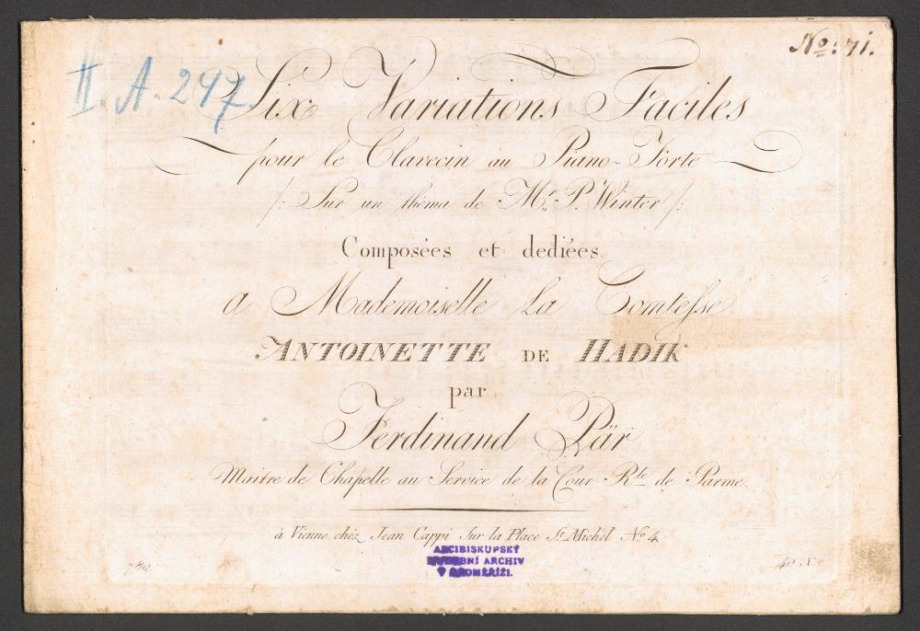 No: 71.
II. A. 247
Six Variations Faciles
pour le Clavecin au Piano-Forte
/: Sur un théma de Mr. P. Winter /:
Composées et dediées
a Mademoiselle La Comtesse
ANTOINETTE DE HADIK
par
Ferdinand Pär
Maitre de Chapelle au Service de la Cour Rle de Parme.
à Vienne chéz Jean Cappi Sur la Place St. Michel No 4
ARCIBISKUPSKÝ
HUDEBNÍ ARCHIV
V KROMĚŘÍŽI.